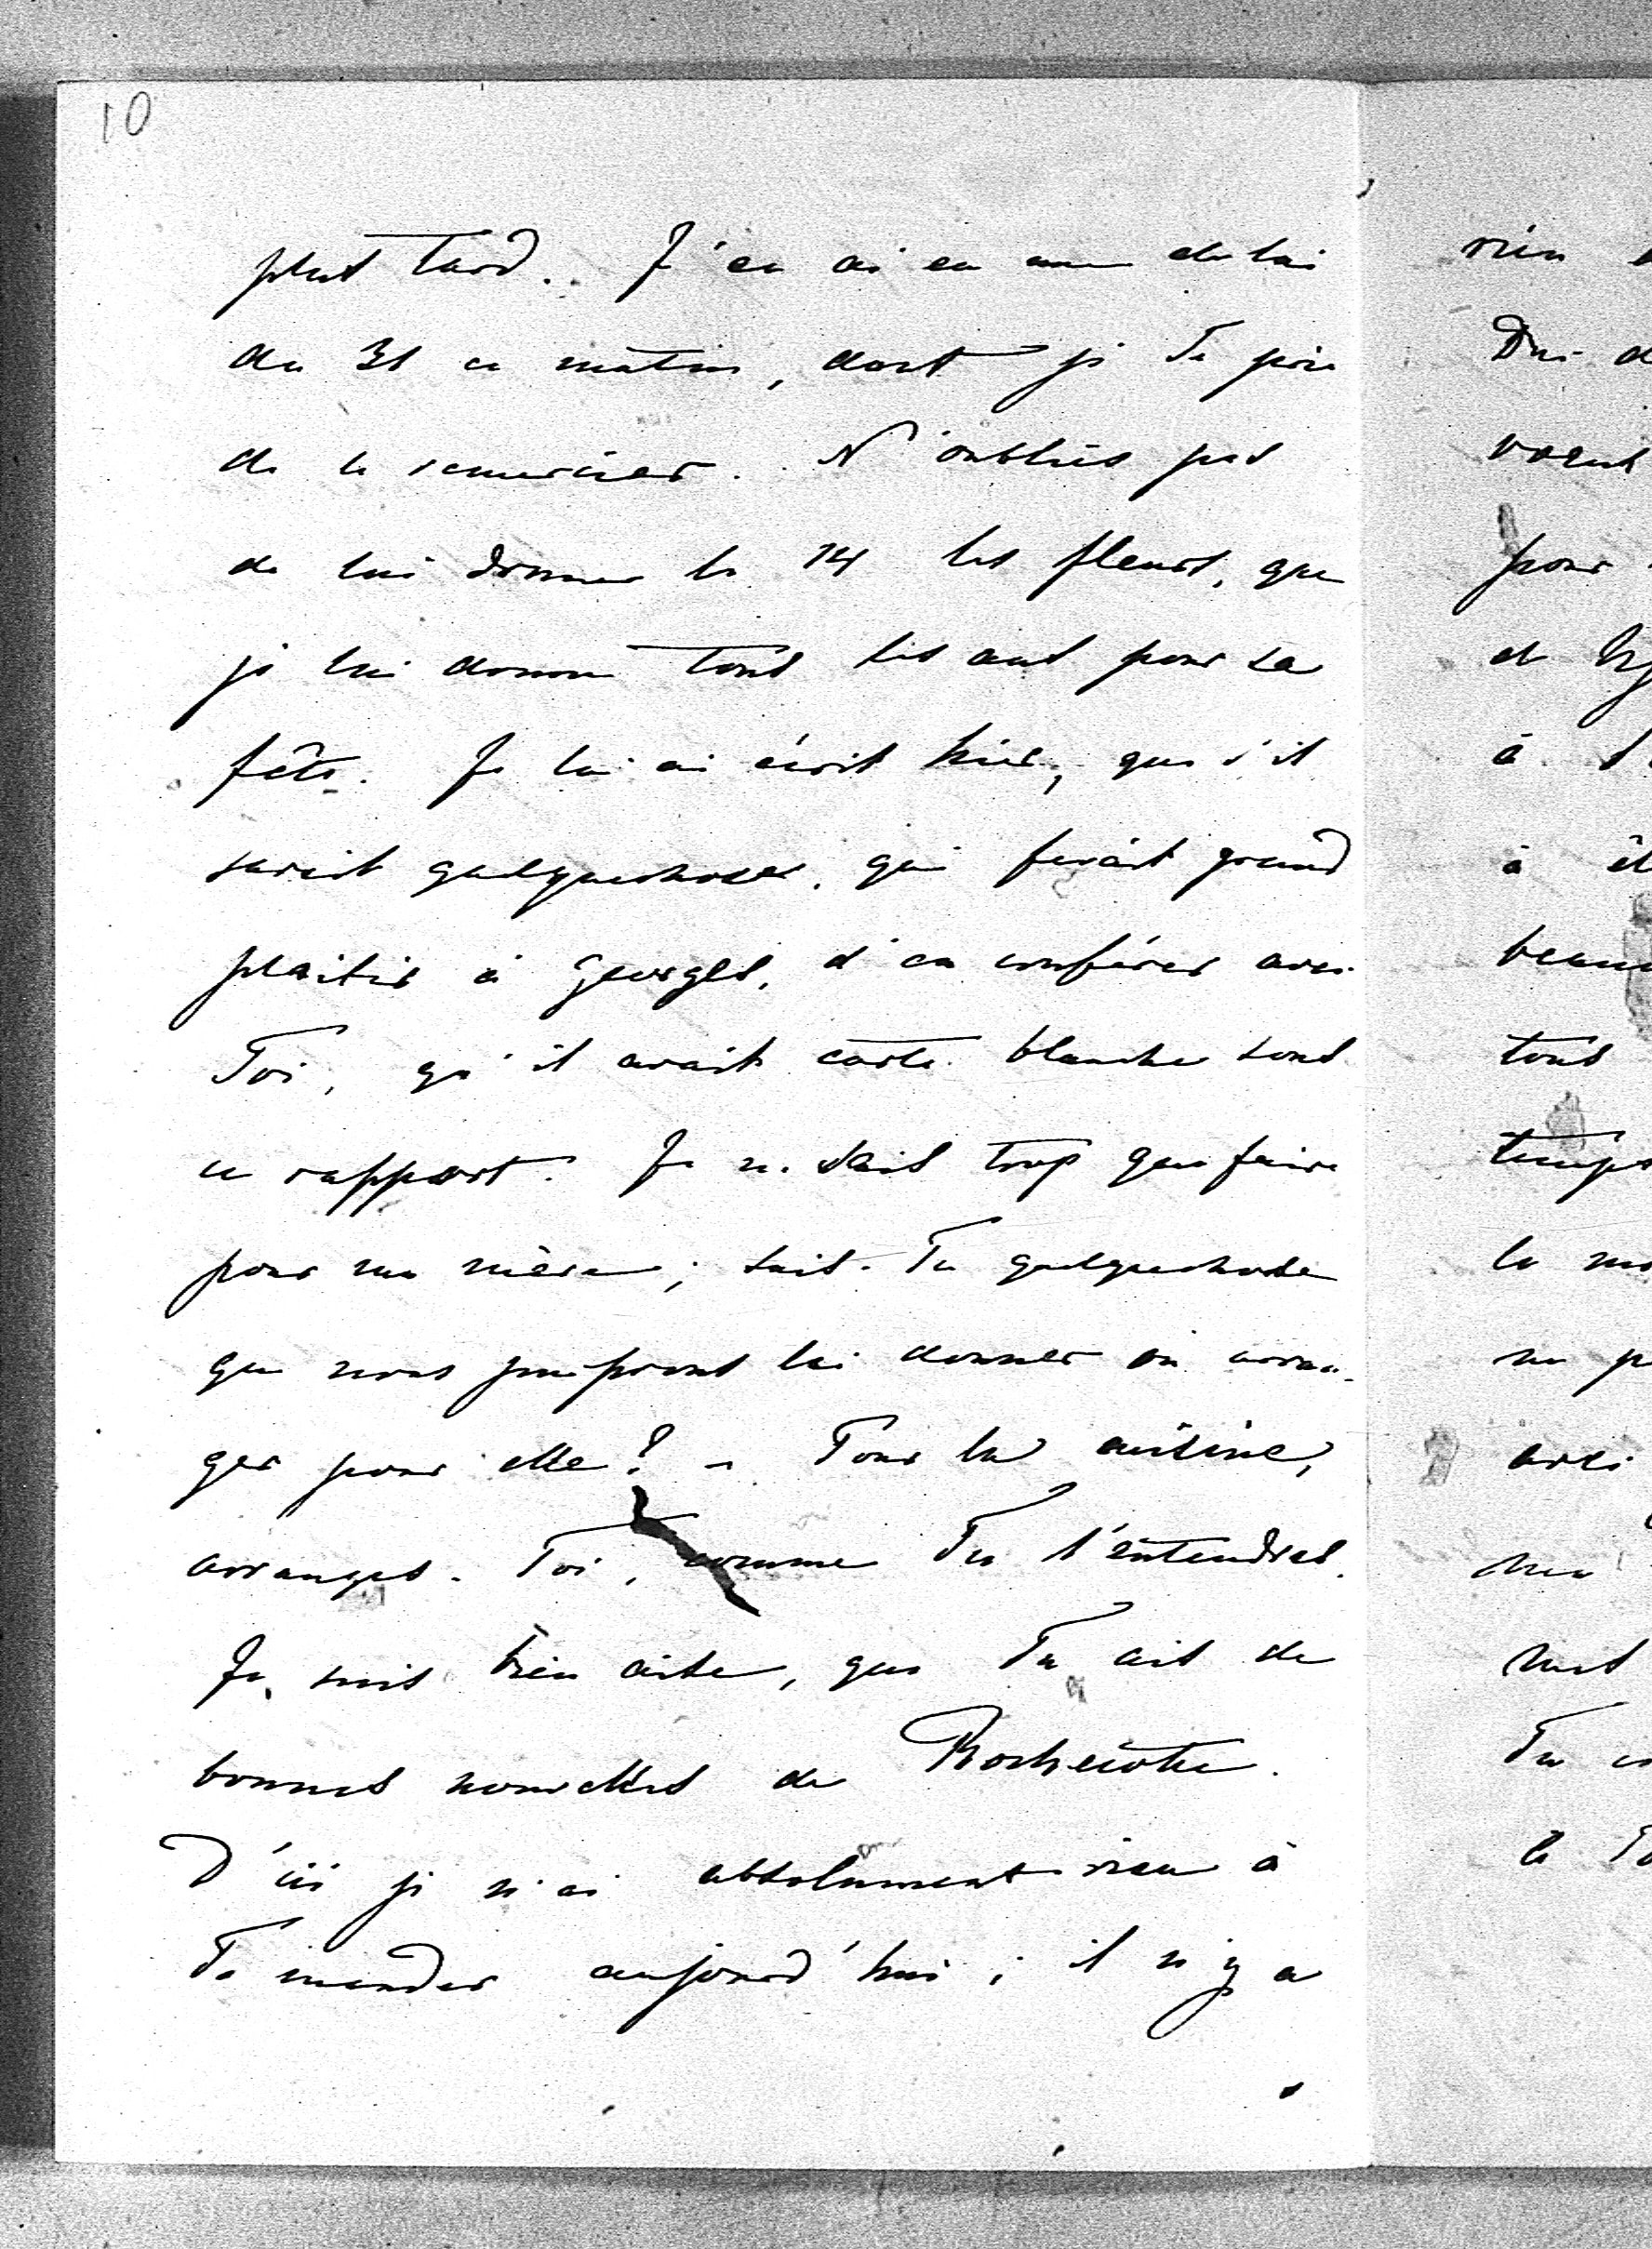 10
plus tard. J'en ai eu une de lui
du 31 ce matin, dont je Te prie
de le remercier. N'oublies pas
de lui donner le 14 les fleurs, que
je lui donne tous les ans pour sa
fête. Je lui ai écrit hier, que s'il
savait quelquechose, qui ferait grand
plaisir à Georges, d'en conférer avec
Toi, qu'il avait carte blanche sous
ce rapport. Je ne sais trop que faire
pour ma mère; sais-Tu quelquechose
que nous pourrions lui donner ou arran-
ger pour elle? - Pour la cuisine,
arranges-Toi, comme Tu l'entendras.
Je suis bien aise, que Tu ais de
bonnes nouvelles de Rochecotte.
D'ici je n'ai absolument rien à
Te mander aujourd'hui; il n'y a
rien
pour
de
à
à
tous
temps
la
ne
avec
Tu